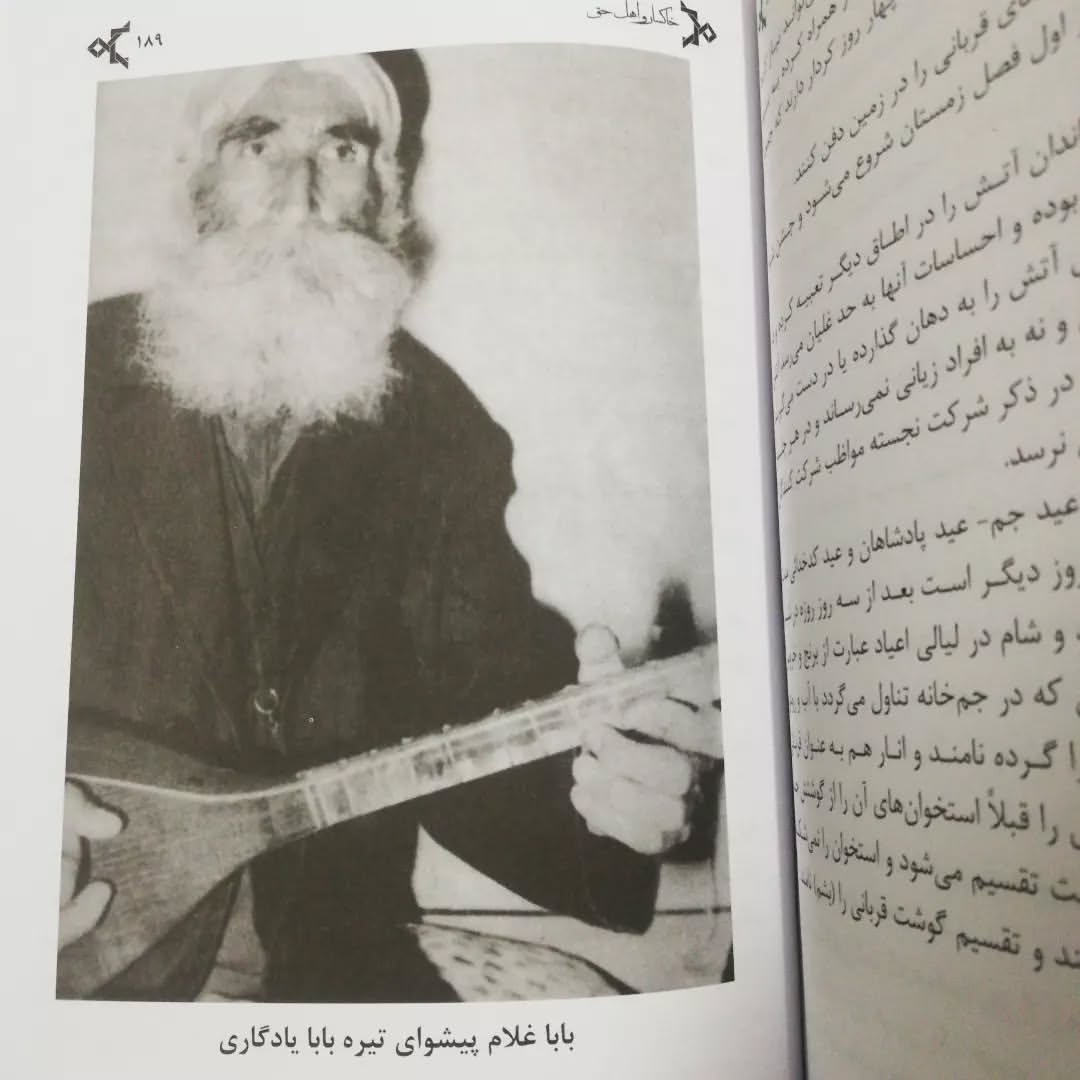 خاکسار و اهل حق
۱۸۹
بابا غلام پیشوای تیره بابا یادگاری
همراه کرده به
چهار روز کردار دارند که
قربانی را در زمین دفن کنند.
اول فصل زمستان شروع می‌شود و جشن
آتش را در اطاق دیگر تعبیه کرده و
بوده و احساسات آنها به حد غلیان می‌رسد
آتش را به دهان گذارده یا در دست می‌گیرند
و نه به افراد زیانی نمی‌رساند و در هر
در ذکر شرکت نجسته مواظب شرکت
نرسد.
عید جم- عید پادشاهان و عید کدخدائی
روز دیگر است بعد از سه روز روزه در
و شام در لیالی اعیاد عبارت از برنج و
که در جم‌خانه تناول می‌گردد با آب و
را گرده نامند و انار هم به عنوان
را قبلاً استخوان‌های آن را از گوشتش
تقسیم می‌شود و استخوان را نمی‌شکنند
و تقسیم گوشت قربانی را (بشم)